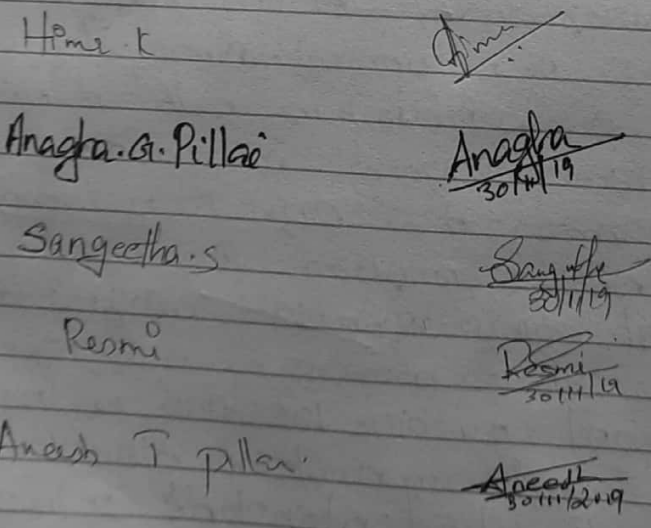 Hima K
Anagha. G. Pillai Anagha
30/11/19
Sangeetha. S Sangeetha
30/11/19
Resmi Resmi
30/11/19
Aneesh T pillai. Aneesh
30/11/2019